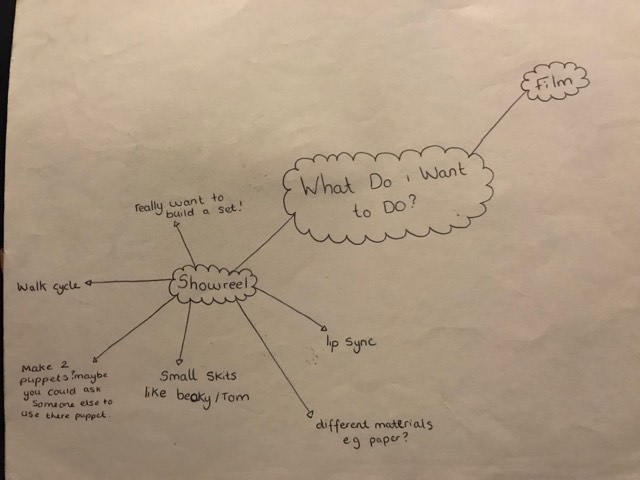 Film
What Do i Want
to DO?
really want to
build a set!
Showreel
Walk cycle
lip sync
Make 2
puppets? maybe
you could ask
someone else to
use there puppet.
Small skits
like becky/Tom
different materials
eg paper?